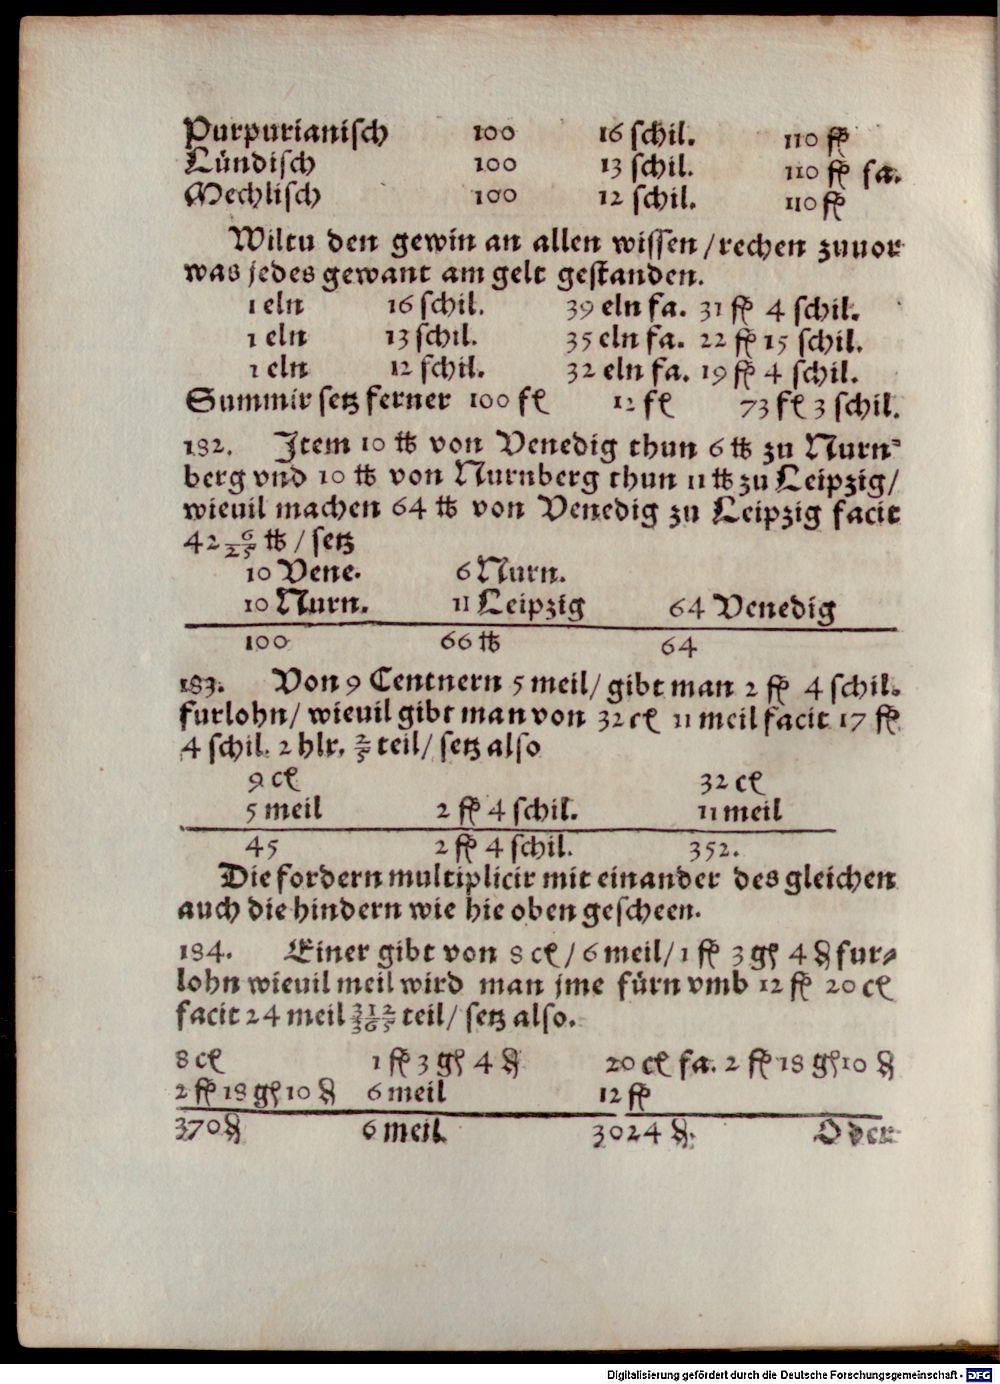 Purpurianisch 100 16 schil. 110 fl
Lündisch 100 13 schil. 110 fl fa.
Mechlisch 100 12 schil. 110 fl
Wiltu den gewin an allen wissen / rechen zuuor
was jedes gewant am gelt gestanden.
1 eln 16 schil. 39 eln fa. 31 fl 4 schil.
1 eln 13 schil. 35 eln fa. 22 fl 15 schil.
1 eln 12 schil. 32 eln fa. 19 fl 4 schil.
Summir setz ferner 100 fl 12 fl 73 fl 3 schil.
182. Item 10 ℔ von Venedig thun 6 ℔ zu Nurn⸗
berg vnd 10 ℔ von Nurnberg thun 11 ℔ zu Leipzig /
wieuil machen 64 ℔ von Venedig zu Leipzig facit
42 6/25 ℔ / setz
10 Vene. 6 Nurn.
10 Nurn. 11 Leipzig 64 Venedig
100 66 ℔ 64
183. Von 9 Centnern 5 meil / gibt man 2 fl 4 schil.
furlohn / wieuil gibt man von 32 cł 11 meil facit 17 fl
4 schil. 2 hlr. 2/5 teil / setz also
9 cł 32 cł
5 meil 2 fl 4 schil. 11 meil
45 2 fl 4 schil. 352.
Die fordern multiplicir mit einander des gleichen
auch die hindern wie hie oben gescheen.
184. Einer gibt von 8 cł / 6 meil / 1 fl 3 gß 4 ₰ fur⸗
lohn wieuil meil wird man jme fürn vmb 12 fl 20 cł
facit 24 meil 312/365 teil / setz also.
8 cł 1 fl 3 gß 4 ₰ 20 cł fa. 2 fl 18 gß 10 ₰
2 fl 18 gß 10 ₰ 6 meil 12 fl
370 ₰ 6 meil 3024 ₰. Oder
Digitalisierung gefördert durch die Deutsche Forschungsgemeinschaft - DFG